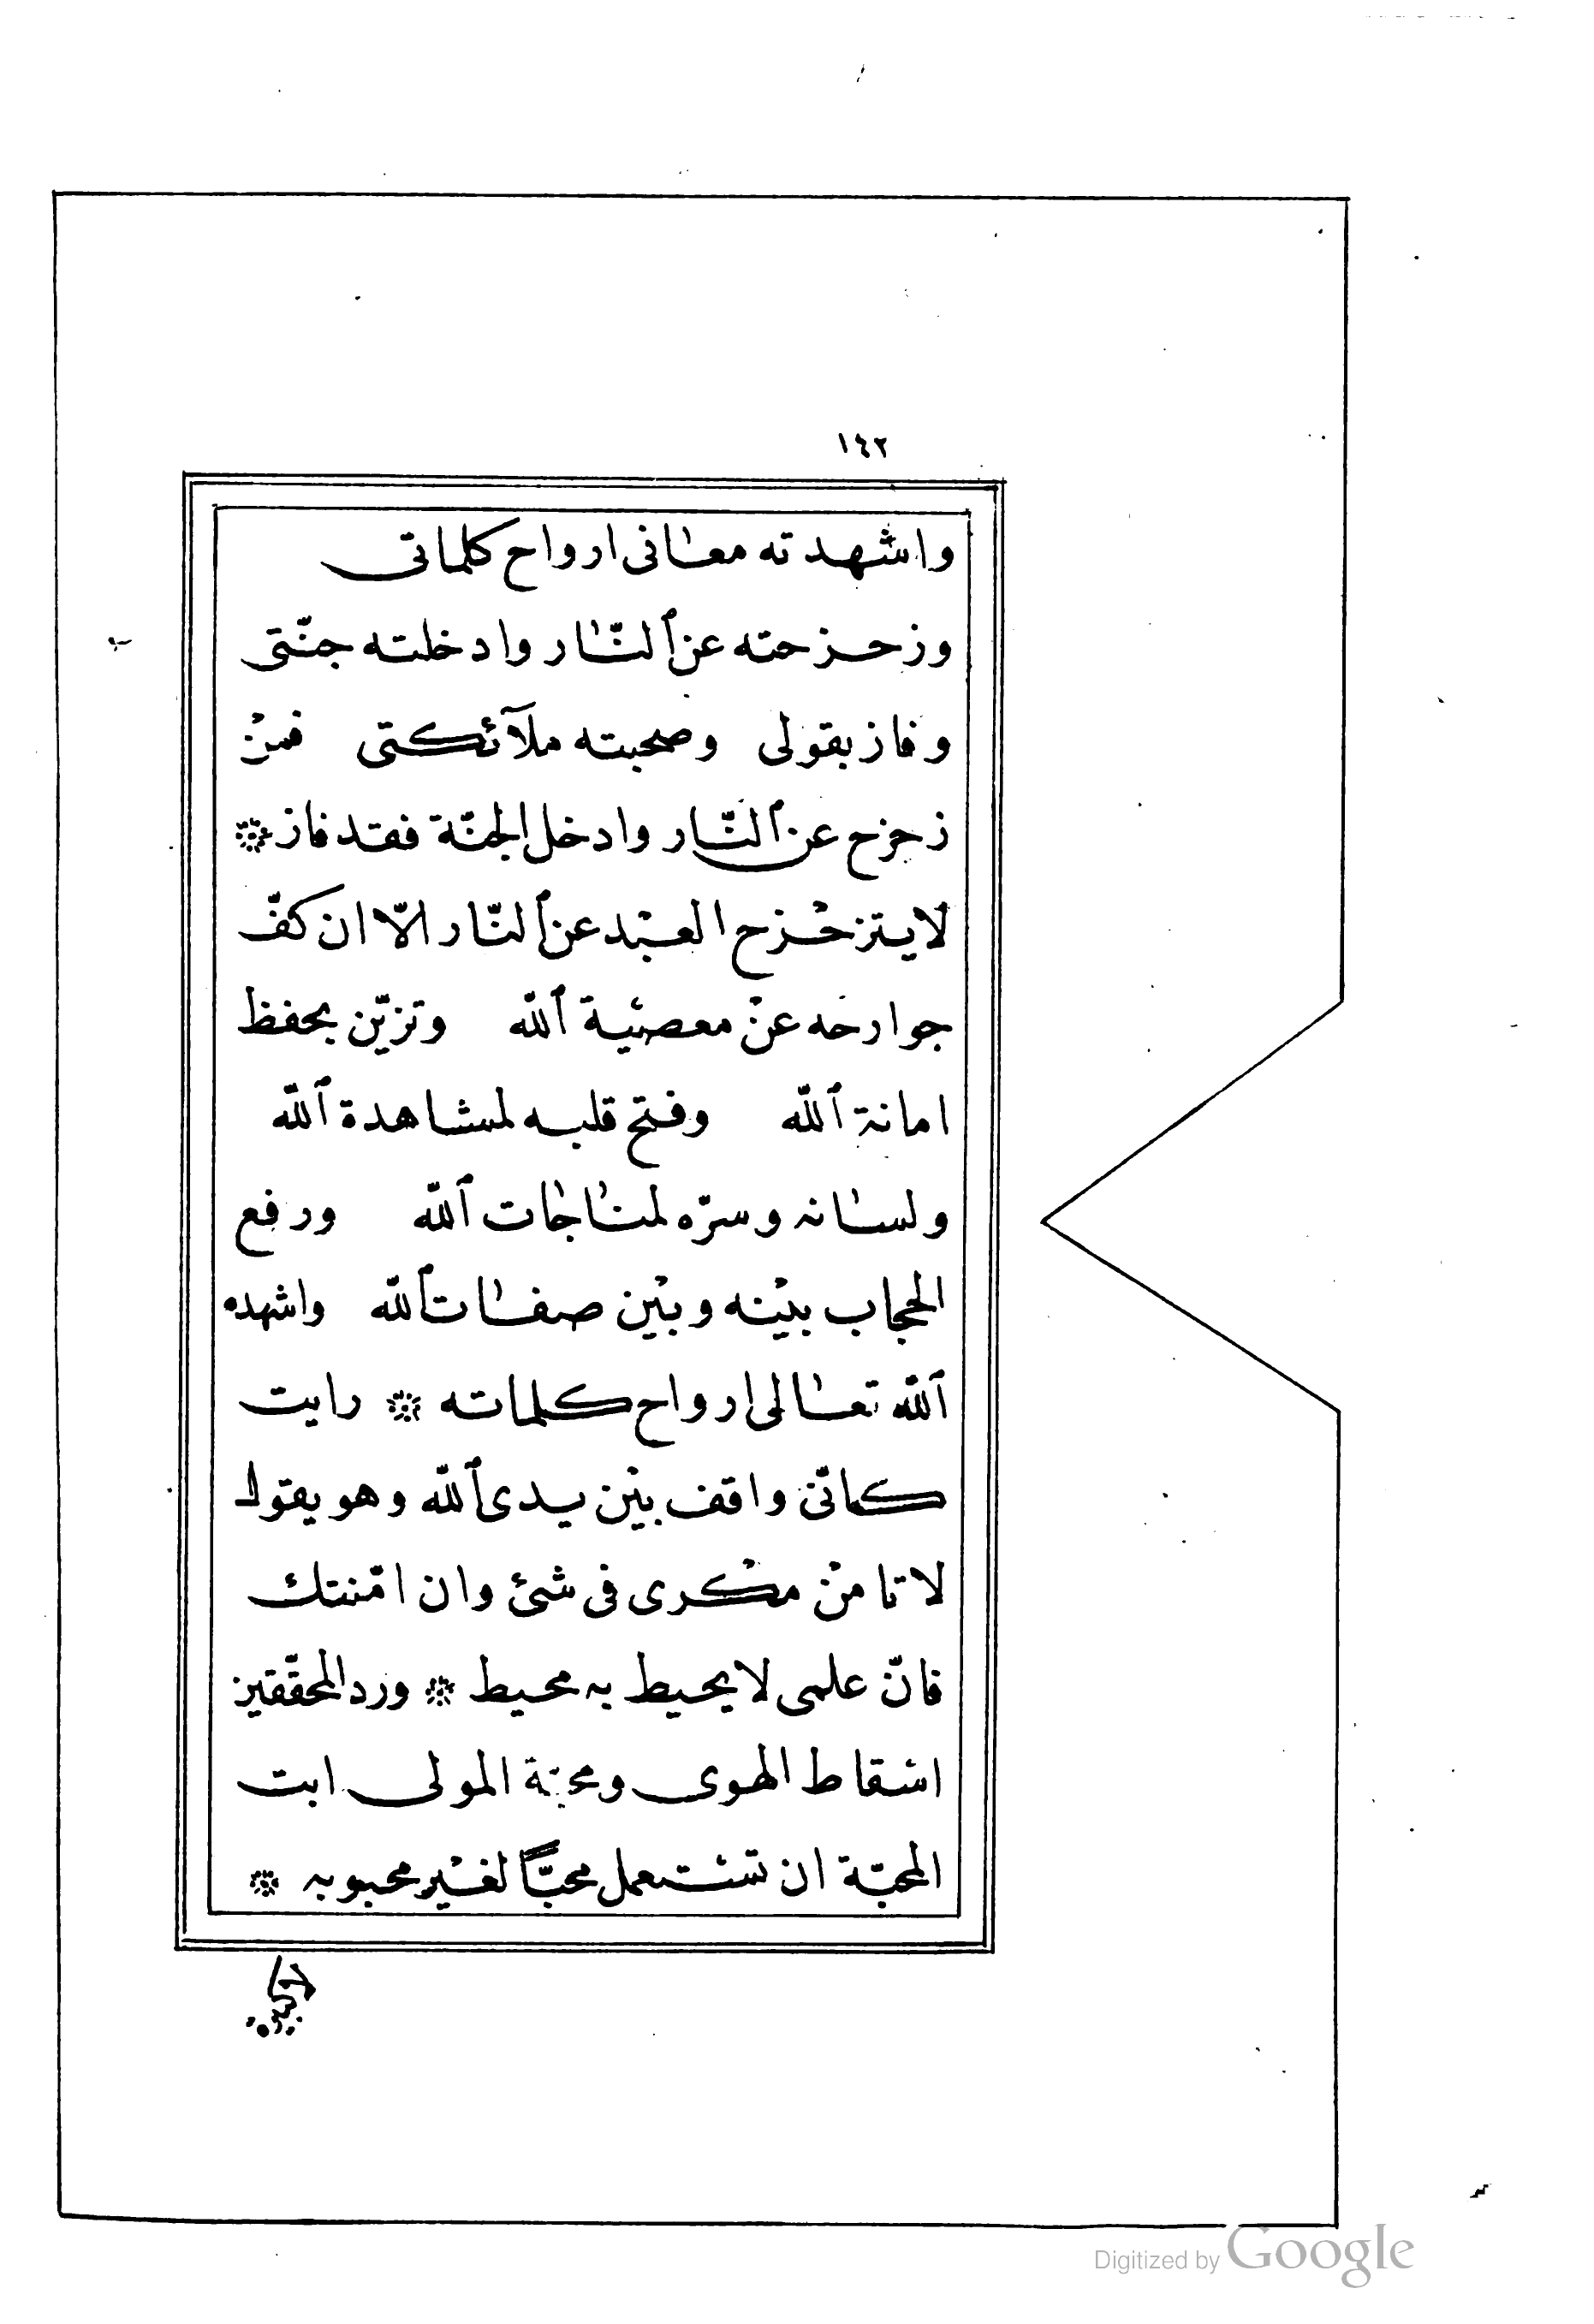 ١٤٢
واشهدته معانى ارواح كلماتى
وزحزحته عن ٱلنّار وادخلته جنّتى
وفاز بقولى وصحبته ملآئكتى فمنْ
زحزح عن ٱلنّار وادخل الجنّة فقد فاز ۞
لا يتزحْزح العبْد عن ٱلنّار الّا ان كفّ
جوارحه عنْ معصية ٱللّه وتزيّن بحفظ
امانة ٱللّه وفتح قلبه لمشاهدة ٱللّه
ولسانه وسرّه لمناجات ٱللّه ورفع
الحجاب بيْنه وبيْن صفات ٱللّه واشهده
ٱللّه تعالى ارواح كلماته ۞ رايت
كانّى واقف بيْن يدى ٱللّه وهو يقول
لا تامنْ مكْرى فى شئ وان امّنتك
فانّ علمى لا يحيط به محيط ۞ ورد المحقّقين
اسْقاط الهوى ومحبّة المولى ابت
المحبّة ان تسْتعمل محبًّا لغيْر محبوبه ۞